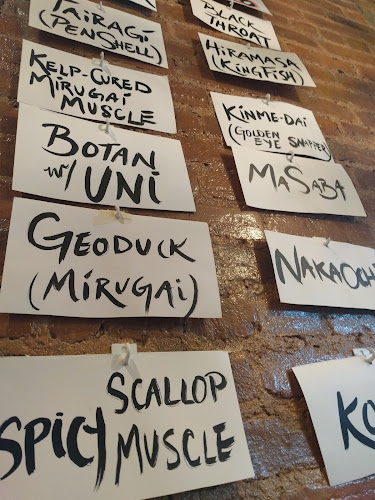 TAIRAGI
(PENSHELL)
KELP-CURED
MIRUGAI
MUSCLE
BOTAN
w/ UNI
GEODUCK
(MIRUGAI)
SPICY SCALLOP
MUSCLE
BLACK
THROAT
HIRAMASA
(KINGFISH)
KINME-DAI
(GOLDEN
EYE SNAPPER)
MASABA
NAKAOCHI
KO